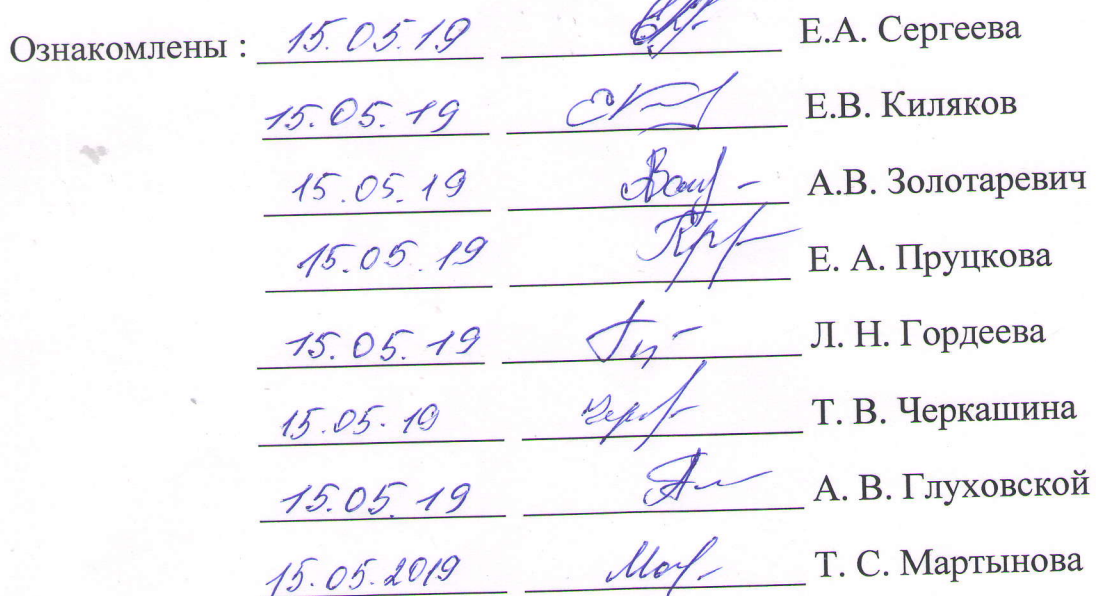 Ознакомлены : 15.05.19 Е.А. Сергеева
15.05.19 Е.В. Киляков
15.05.19 А.В. Золотаревич
15.05.19 Е. А. Пруцкова
15.05.19 Л. Н. Гордеева
15.05.19 Т. В. Черкашина
15.05.19 А. В. Глуховской
15.05.2019 Т. С. Мартынова